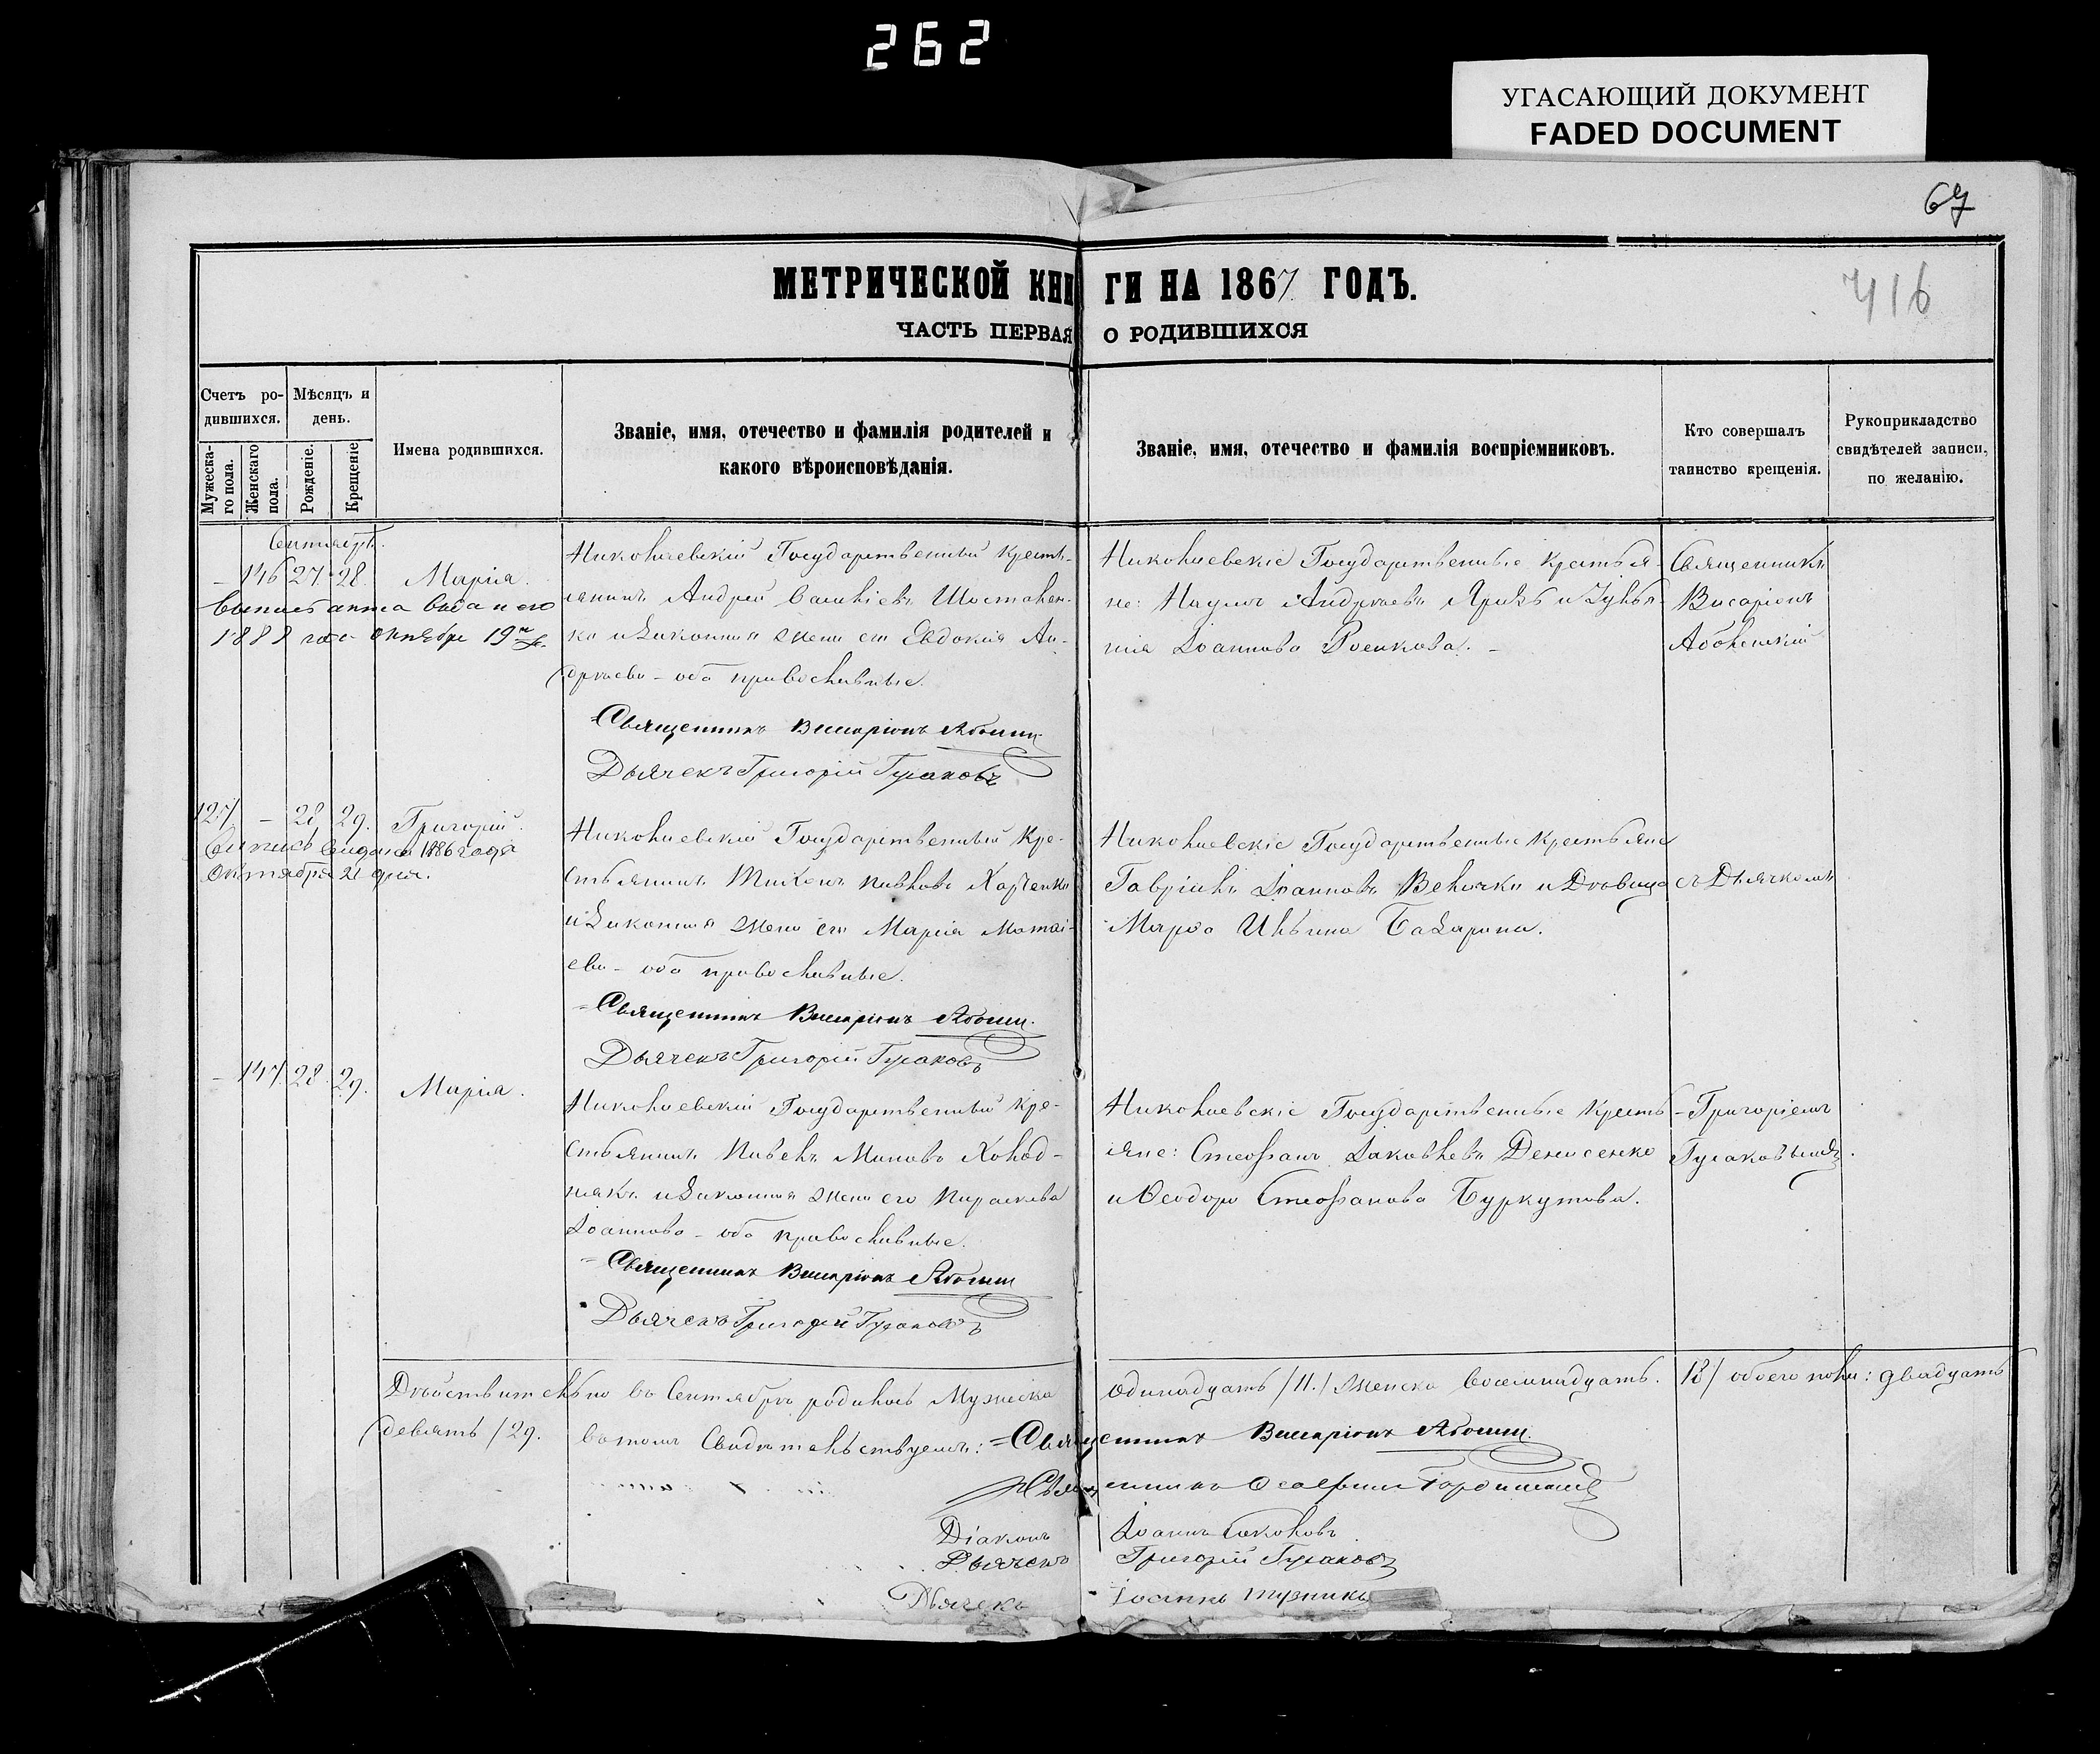 262
УГАСАЮЩИЙ ДОКУМЕНТ
FADED DOCUMENT
67
416
МЕТРИЧЕСКОЙ КНИГИ НА 1867 ГОДЪ.
ЧАСТЬ ПЕРВАЯ О РОДИВШИХСЯ
Счетъ родившихся.
Мужескаго пола.
Женскаго пола.
Мѣсяцъ и день.
Рожденіе.
Крещеніе
Имена родившихся.
Званіе, имя, отечество и фамилія родителей и
какого вѣроисповѣданія.
Званіе, имя, отечество и фамилія воспріемниковъ.
Кто совершалъ
таинство крещенія.
Рукоприкладство
свидѣтелей записи,
по желанію.
Сентябрь.
– 146 27. 28. Марія.
1888 года октября 19
Николаевскій Государственный кресть-
янинъ Андрей Шостакен-
ко и законная жена его Евдокія Ан-
дреева – оба православные.
Священникъ Висаріонъ
Дьячекъ Григорій Гусаковъ
Николаевскіе Государственные крестья-
не: Наумъ Андреевъ и
Іоаннова
Священникъ
Висаріонъ
127 – 28 29. Григорій.
Выпись выдана 1886 года
Октября 21 дня.
Николаевскій Государственный кре-
стьянинъ Харченко
и законная жена его Марія
ева – оба православные.
Священникъ Висаріонъ
Дьячекъ Григорій Гусаковъ
Николаевскіе Государственные крестьяне
Гавріилъ Іоанновъ Величко и Дѣвица
Марѳа Ильина
съ Дьячкомъ
– 147. 28. 29. Марія.
Николаевскій Государственный кре-
стьянинъ Павелъ Холод-
някъ и законная жена его Параскева
Іоаннова – оба православные.
Священникъ Висаріонъ
Дьячекъ Григорій Гусаковъ
Николаевскіе Государственные кресть-
яне: Стефанъ Іаковлевъ Денисенко
и Ѳеодора Стефанова Буркутова.
Григоріемъ
Гусаковымъ.
Дѣйствительно въ Сентябрѣ родилось Мужеска одинадцать /11./ Женска восемнадцать. 18/ обоего пола: двадцать
девять /29. въ томъ свидѣтельствуемъ: Священникъ Висаріонъ
Священникъ
Діаконъ Іоаннъ Соколовъ
Дьячекъ Григорій Гусаковъ
Дьячекъ Іоаннъ